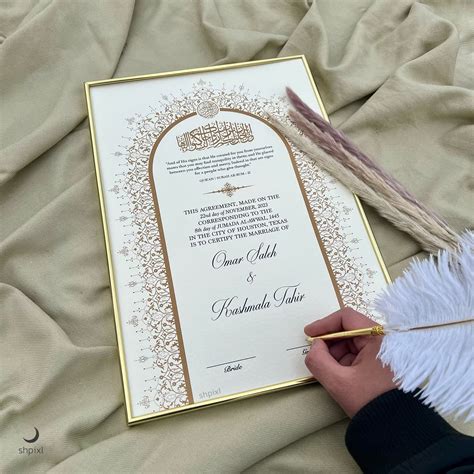 "And of His signs is that He created for you from yourselves
mates that you may find tranquility in them; and He placed
between you affection and mercy. Indeed in that are signs
for a people who give thought."
QURAN | SURAH AR RUM - 21
THIS AGREEMENT, MADE ON THE
22nd day of NOVEMBER, 2023
CORRESPONDING TO THE
8th day of JUMADA AL-AWWAL, 1445
IN THE CITY OF HOUSTON, TEXAS
IS TO CERTIFY THE MARRIAGE OF
Omar Saleh
&
Kashmala Tahir
Bride
shpixl
shpixl